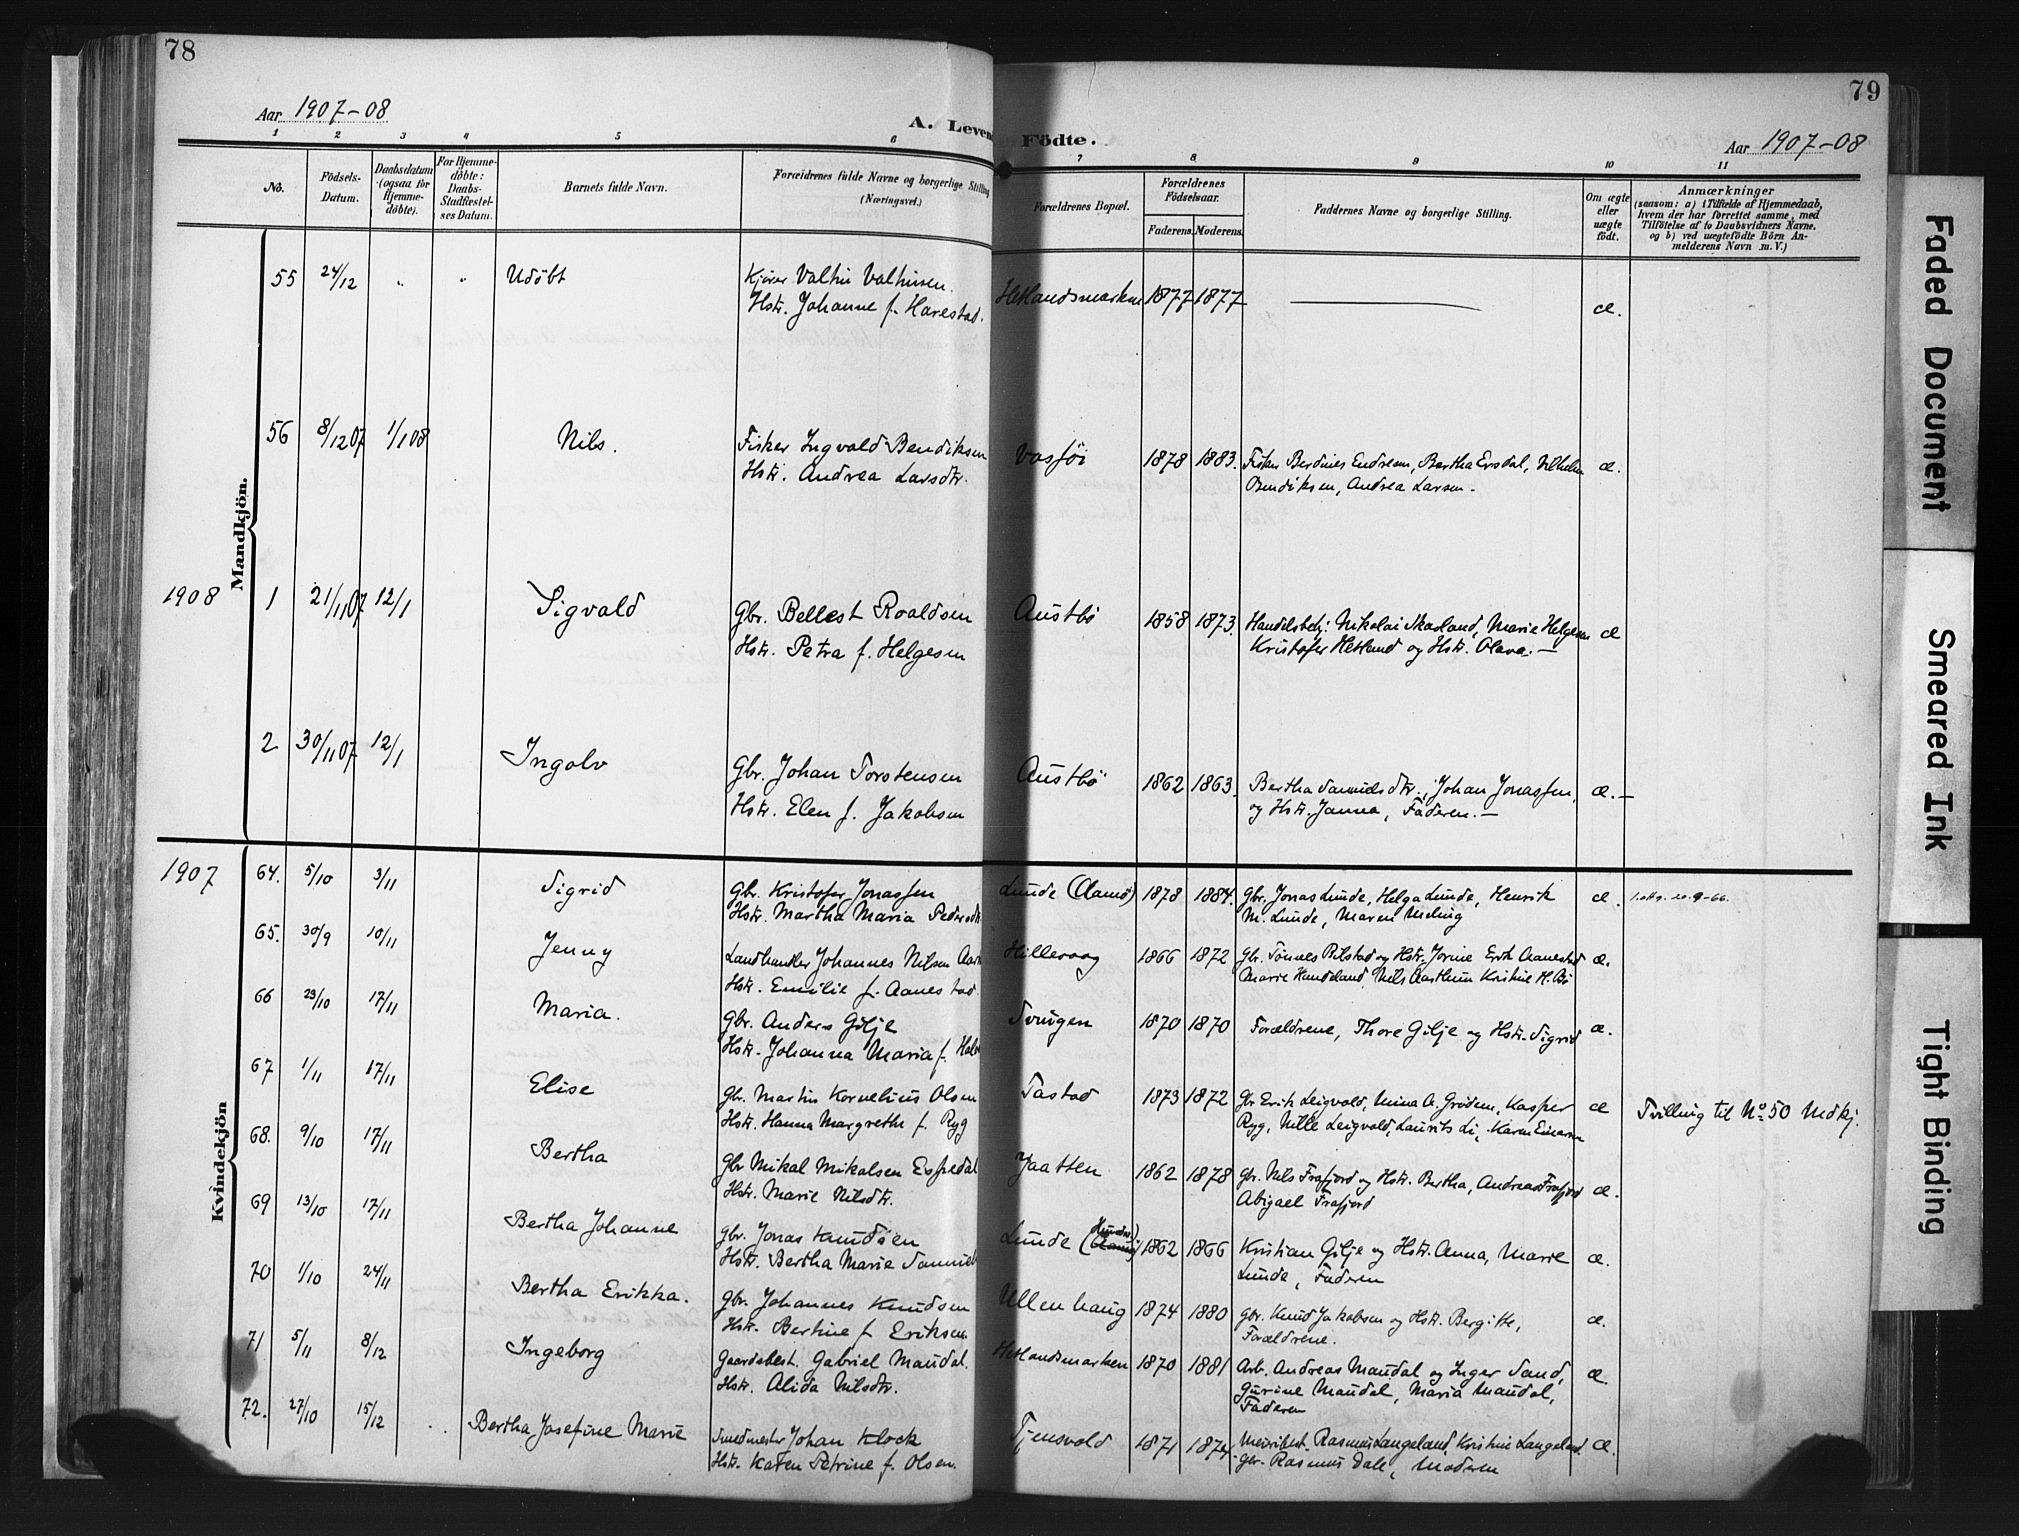 78
Aar 1907-08
A. Levende
1 2 3 4 5 6
No. Fødsels-Datum. Daabsdatum (ogsaa for Hjemme-døbte). For Hjemme-døbte: Daabs-Stadfæstel-ses Datum. Barnets fulde Navn. Forældrenes fulde Navne og borgerlige Stilling (Næringsvei.)
Mandkjön.
55 24/12 " " Udöbt Kjører Valhin Valhinsen.
Hstr. Johanne f. Harestad.
56 8/12 07 1/1 08 Nils. Fisker Ingvald Bendiksen
Hstr. Andrea Larsdtr.
1908 1 21/11 07 12/1 Sigvald Gbr. Bellest Roaldsen
Hstr. Petra f. Helgesen
2 30/11 07 12/1 Ingolv Gbr. Johan Torstensen
Hstr. Elen f. Jakobsen
Kvindekjön
1907 64. 5/10 3/11 Sigrid Gbr. Kristofer Jonassen
Hstr. Martha Maria Pedersdtr
65. 30/9 10/11 Jenny Landhandler Johannes Nilsen
Hstr. Emilie f. Aanestad
66 23/10 17/11 Maria. Gbr. Anders Gilje
Hstr. Johanna Maria f.
67 1/11 17/11 Elise Gbr. Martin Kornelius Olsen
Hstr. Hanna Margrethe f. Ryg
68. 9/10 17/11 Bertha Gbr Mikal Mikalsen Espedal
Hstr. Marie Nilsdtr.
69 13/10 17/11 Bertha Johanne Gbr. Jonas Knudsen
Hstr. Bertha Marie Samuels
70 1/10 24/11 Bertha Erikka. Gbr. Johannes Knudsen
Hstr. Bertine f. Eriksen
71 5/11 8/12 Ingeborg Gaardsbest. Gabriel Maudal.
Hstr. Alida Nilsdtr.
72. 27/10 15/12 Bertha Josefine Marie Smedmester Johan Klock
Hstr. Karen Petrine f. Olsen.
79
Födte.
Aar 1907-08
7 8 9 10 11
Forældrenes Bopæl. Forældrenes Fødselsaar. Faderens. Moderens. Faddernes Navne og borgerlige Stilling. Om ægte eller uægte født. Anmærkninger
(saasom: a) i Tilfælde af Hjemmedaab,
hvem der har forrettet samme, med
Tilføielse af to Daabsvidners Navne,
og b) ved uægtefødte Börn An-
melderens Navn m. V.)
Hetlandsmarken 1877 1877 æ.
Vasföi 1878 1883. Fisker Berdines Endresen, Bertha Ersdal, Vilhelm æ.
Bendiksen, Andrea Larsen.
Austbö 1858 1873. Handelsbetj: Nikolai Skasland, Marie Helgesen æ
Kristofer Hetland og Hstr. Olava.
Austbö 1862 1863. Bertha Samuelsdtr., Johan Jonassen, æ.
og Hstr. Janna, Faderen.
Lunde (Aamö) 1878 1884. Gbr. Jonas Lunde, Helga Lunde, Henrik æ.
M. Lunde, Maren Meling
Hillevaag 1866 1872 Gbr. Tönnes Bilstad og Hstr. Jorine Erik Aanestad æ.
Marie Handeland, Nils Aastheim Kristine H. Bö
Tvingen 1870 1870 Forældrene, Thore Gilje og Hstr. Sigrid æ.
Tastad 1873 1872 Gbr Erik Leigvold, Mina A. Grödem, Kasper æ Tvilling til No 50 Mdkj.
Ryg, Nille Leigvold, Laurits Li, Karen Einarsen
Jaatten 1862 1878 Gbr. Nils Frafjord og Hstr. Bertha, Andreas Frafjord æ.
Abigael Frafjord
Lunde (Aamö) 1862 1866 Kristian Gilje og Hstr. Anna, Marie æ.
Lunde, Faderen
Ullenhaug 1874 1880 Gbr. Knud Jakobsen og Hstr. Bergitte, æ.
Forældrene.
Hetlandsmarken 1870 1881 Arb. Andreas Maudal og Inger Sand, æ.
Gurine Maudal, Maria Maudal,
Faderen
Tjensvold 1871 1874. Meieribest. Rasmus Langeland, Kristine Langeland æ.
Gbr. Rasmus Dale, Moderen
Faded Document
Smeared Ink
Tight Binding